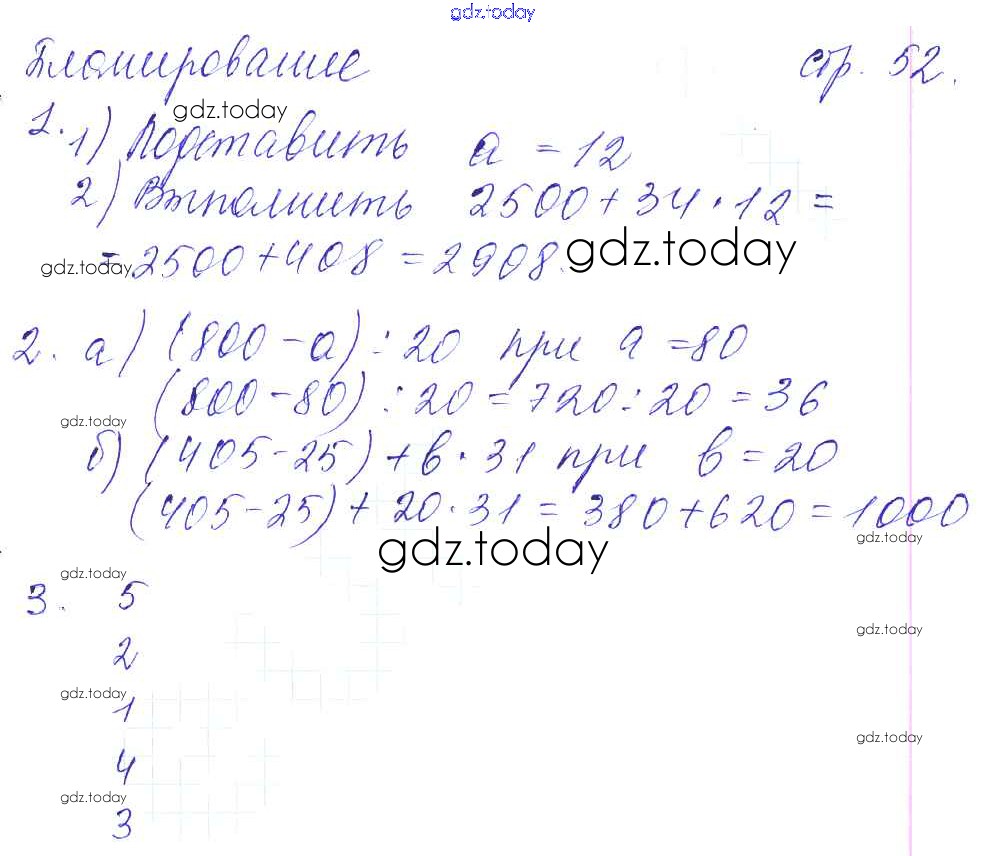 gdz.today
Планирование стр. 52.
gdz.today
1. 1) Подставить a = 12
2) Выполнить 2500 + 34 · 12 =
gdz.today = 2500 + 408 = 2908. gdz.today
2. а) (800 - a) : 20 при a = 80
(800 - 80) : 20 = 720 : 20 = 36
gdz.today
б) (405 - 25) + в · 31 при в = 20
(405 - 25) + 20 · 31 = 380 + 620 = 1000
gdz.today gdz.today
gdz.today
3. 5
gdz.today
2
gdz.today
1
gdz.today
4
gdz.today
3